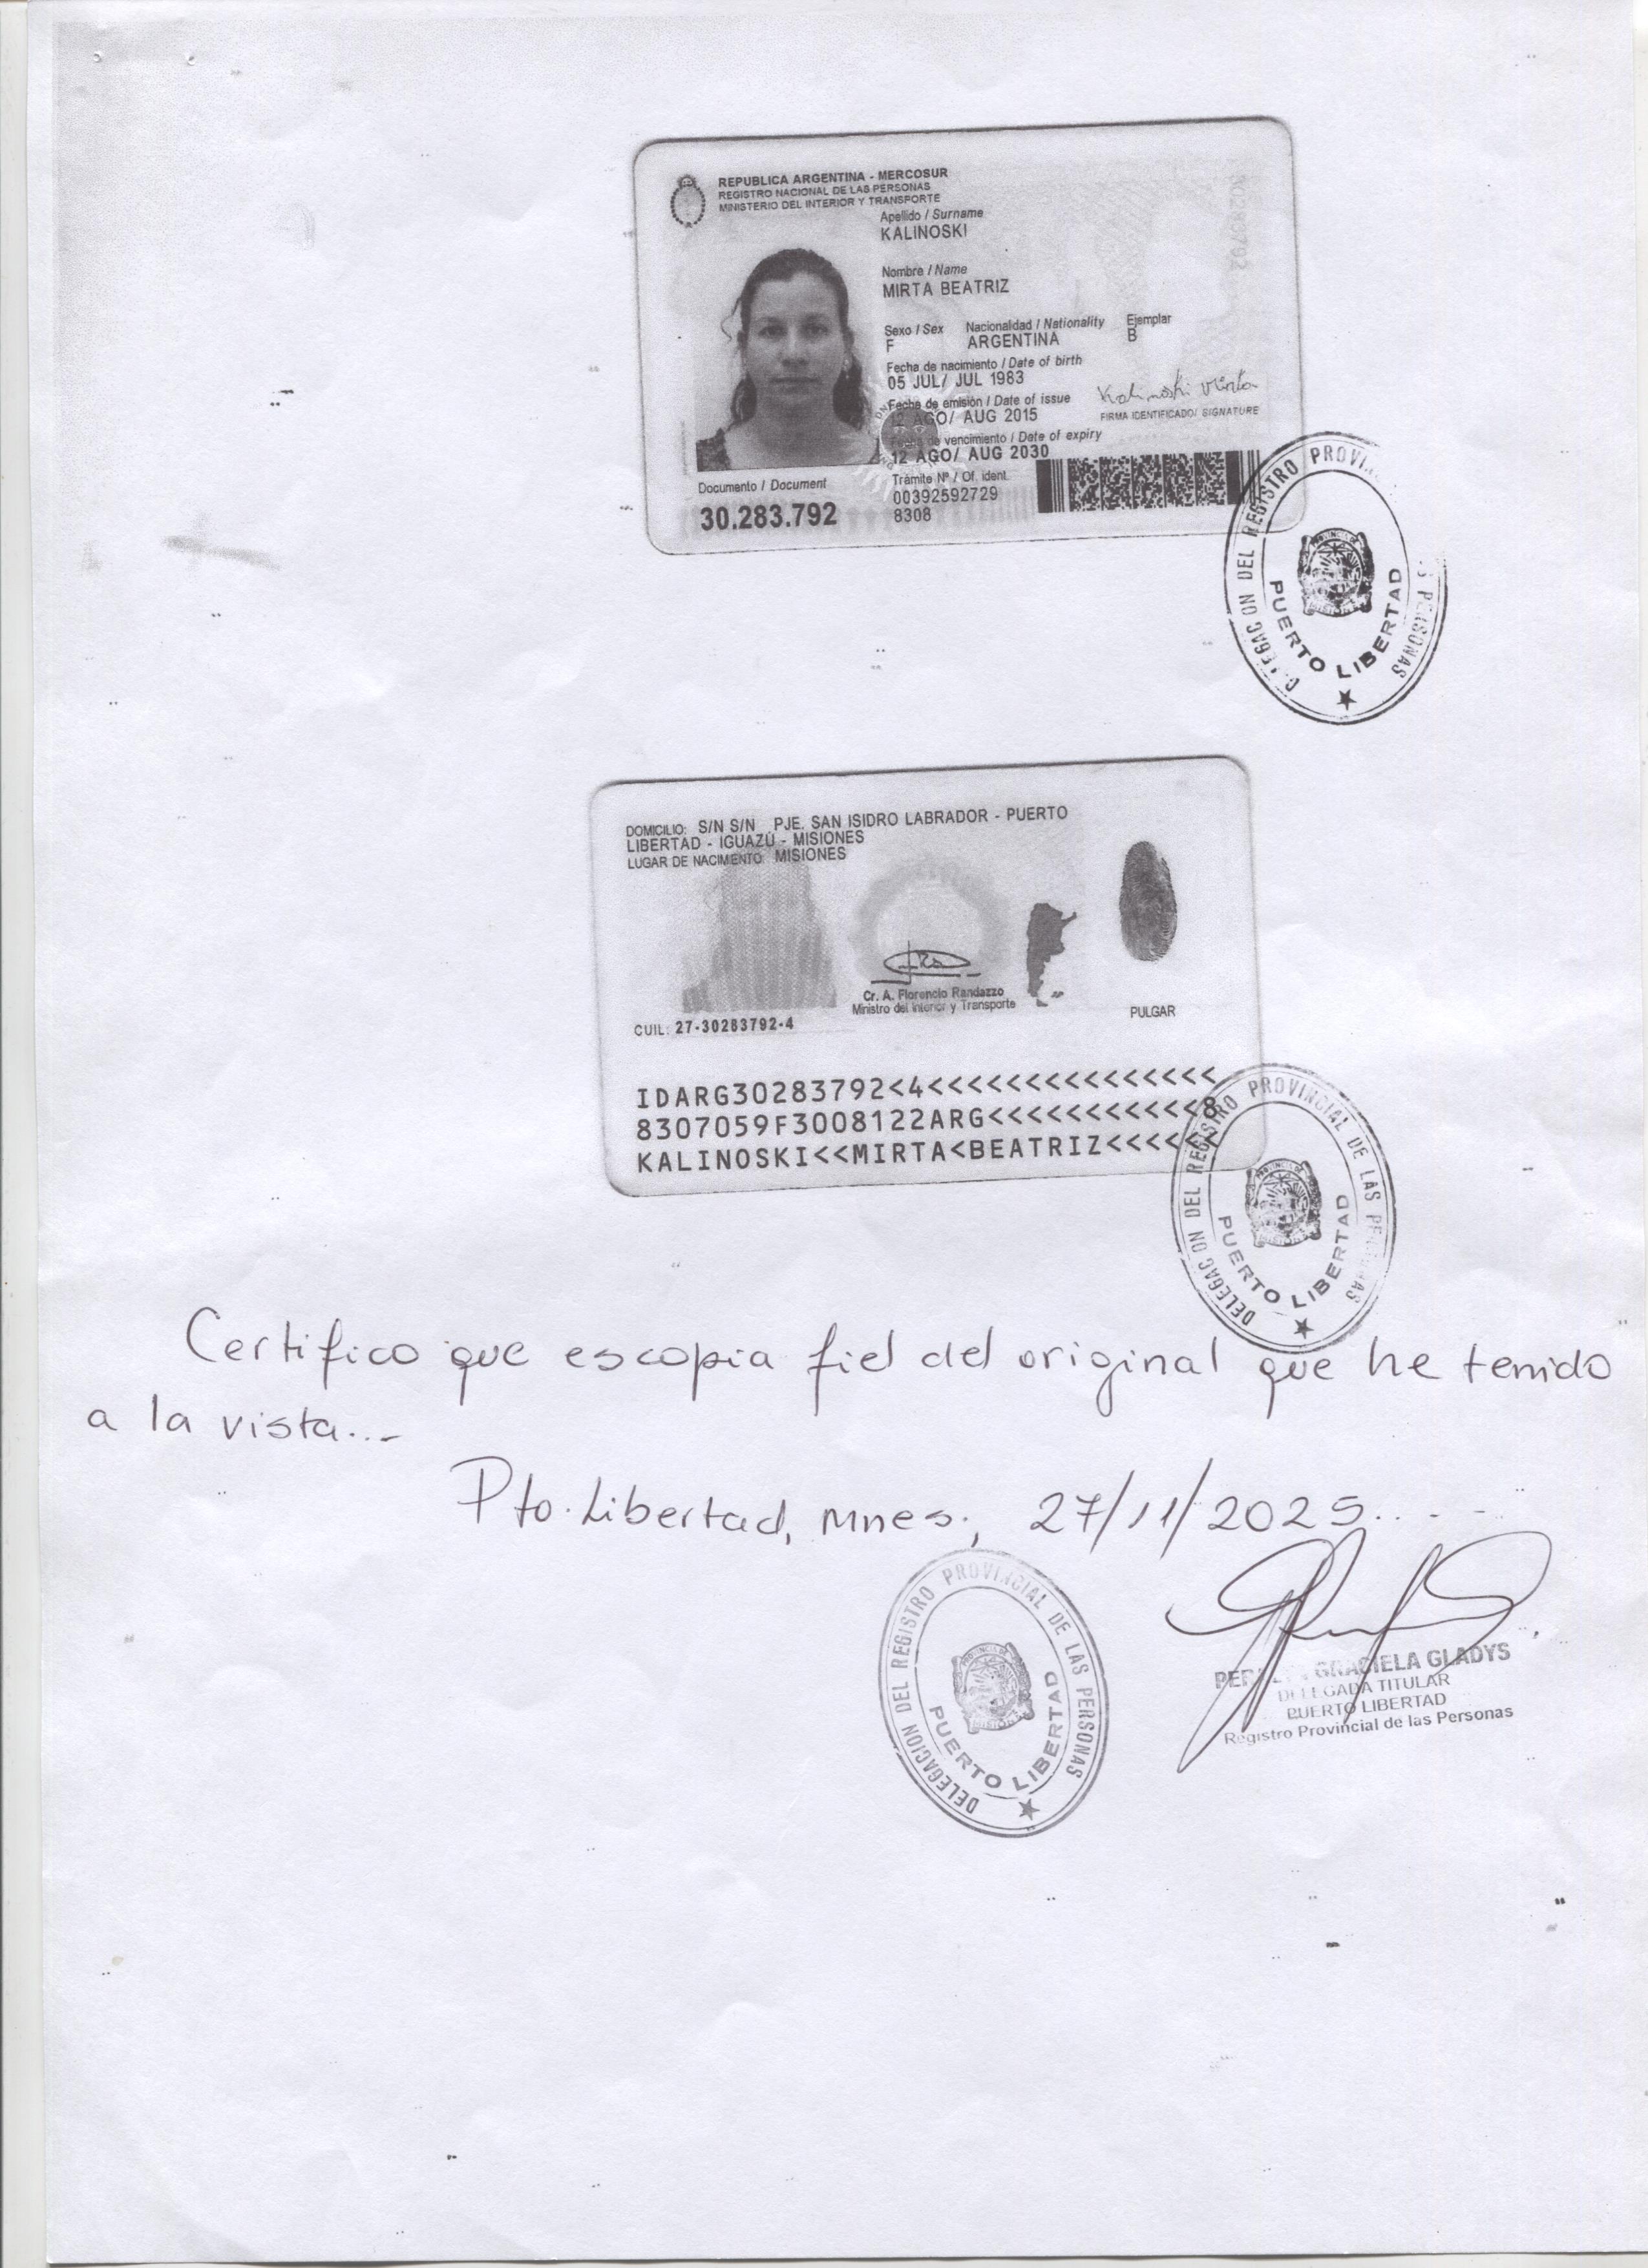 REPUBLICA ARGENTINA - MERCOSUR
REGISTRO NACIONAL DE LAS PERSONAS
MINISTERIO DEL INTERIOR Y TRANSPORTE
Apellido / Surname
KALINOSKI
Nombre / Name
MIRTA BEATRIZ
Sexo / Sex Nacionalidad / Nationality Ejemplar
F ARGENTINA B
Fecha de nacimiento / Date of birth
05 JUL/ JUL 1983
Fecha de emisión / Date of issue
12 AGO/ AUG 2015
Kalinoski Mirta
FIRMA IDENTIFICADO/ SIGNATURE
Fecha de vencimiento / Date of expiry
12 AGO/ AUG 2030
Documento / Document
30.283.792
Trámite Nº / Of. ident.
00392592729
8308
REGISTRO PERSONAS
PUERTO LIBERTAD
DOMICILIO: S/N S/N PJE. SAN ISIDRO LABRADOR - PUERTO
LIBERTAD - IGUAZÚ - MISIONES
LUGAR DE NACIMENTO: MISIONES
Cr. A. Florencio Randazzo
Ministro del Interior y Transporte
CUIL: 27-30283792-4
PULGAR
IDARG30283792<4<<<<<<<<<<<<<<<
8307059F3008122ARG<<<<<<<<<<<8
KALINOSKI<<MIRTA<BEATRIZ<<<<<<
DEL REGISTRO PROVINCIAL DE LAS
PUERTO LIBERTAD
Certifico que es copia fiel del original que he tenido
a la vista...
Pto. Libertad, Mnes., 27/11/2025....
DELEGACION DEL REGISTRO PROVINCIAL DE LAS PERSONAS
PUERTO LIBERTAD
GRACIELA GLADYS
DELEGADA TITULAR
PUERTO LIBERTAD
Registro Provincial de las Personas